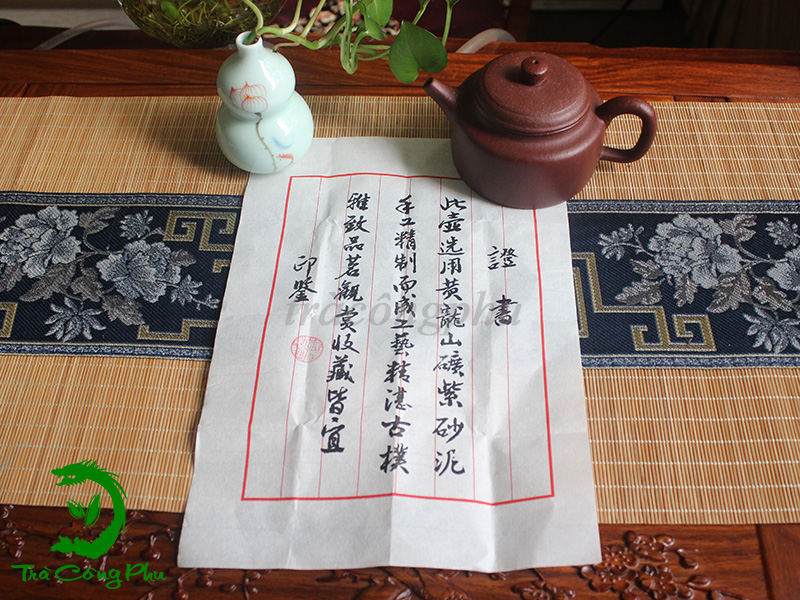 證書
此壺选用黄龍山礦紫砂泥
手工精制而成工藝精湛古樸
雅致品茗觀赏收藏皆宜
印鑒
tràcôngphu
Trà Công Phu